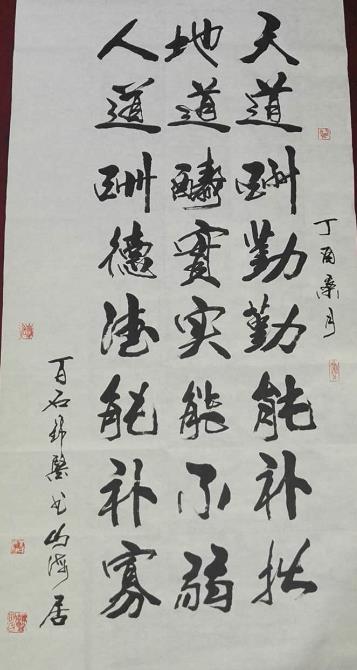 丁酉桑月
天道酬勤勤能补拙
地道醻實实能不弱
人道酬德德能补寡
百石书山海居